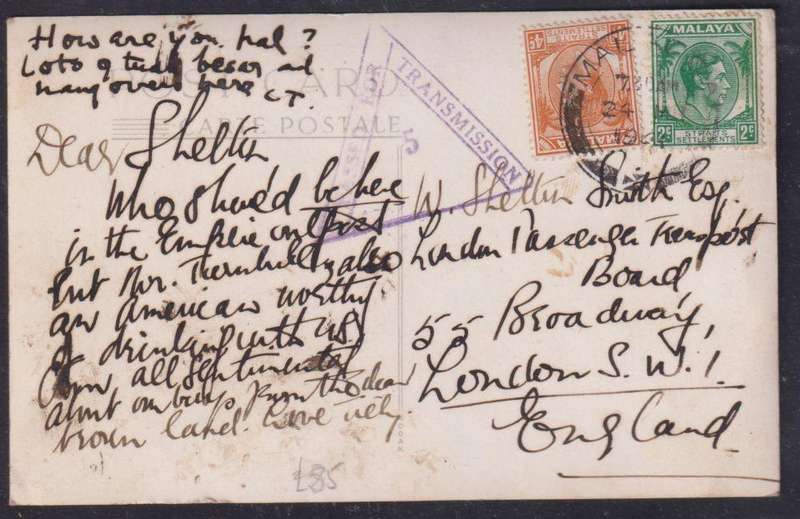 How are you hal?
Lots of talk besar and
hangovers here
C.T.
POST CARD
CARTE POSTALE
Dear Sheltin
Who should be here
in the Empire outpost
but Mr. Turnbull
an American worthy
of drinking with us
all sentimental
about our from the dear
brown land. Love
TRANSMISSION
5
4c
MALAYA
2c STRAITS SETTLEMENTS 2c
24
W. Sheltin Smith Esq.
London Passenger Transport
Board
55 Broadway,
London S.W.1.
England
KODAK
£85